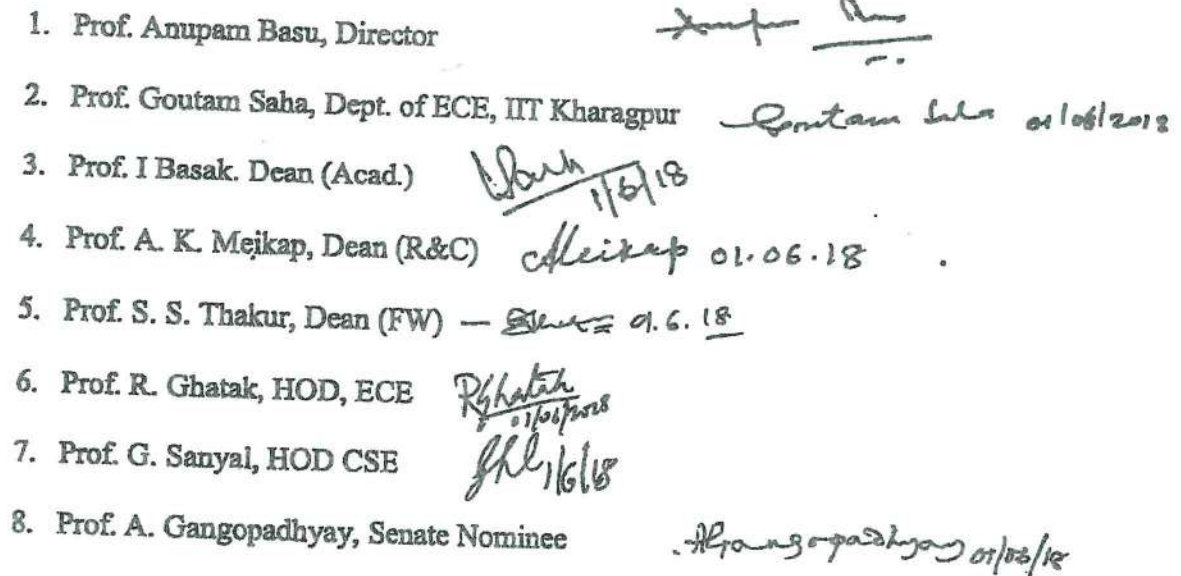 1. Prof. Anupam Basu, Director
2. Prof. Goutam Saha, Dept. of ECE, IIT Kharagpur Goutam Saha 01/06/2018
3. Prof. I Basak. Dean (Acad.) 1/6/18
4. Prof. A. K. Meikap, Dean (R&C) AMeikap 01.06.18
5. Prof. S. S. Thakur, Dean (FW) — 01.6.18
6. Prof. R. Ghatak, HOD, ECE RGhatak 01/06/2018
7. Prof. G. Sanyal, HOD CSE 1/6/18
8. Prof. A. Gangopadhyay, Senate Nominee AGangopadhyay 01/06/18